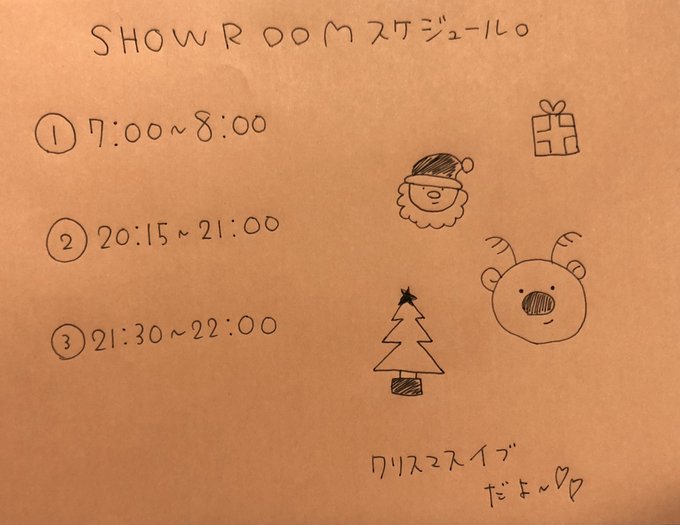 SHOWROOMスケジュール。
① 7:00~8:00
② 20:15~21:00
③ 21:30~22:00
クリスマスイブ
だよ~♡♡